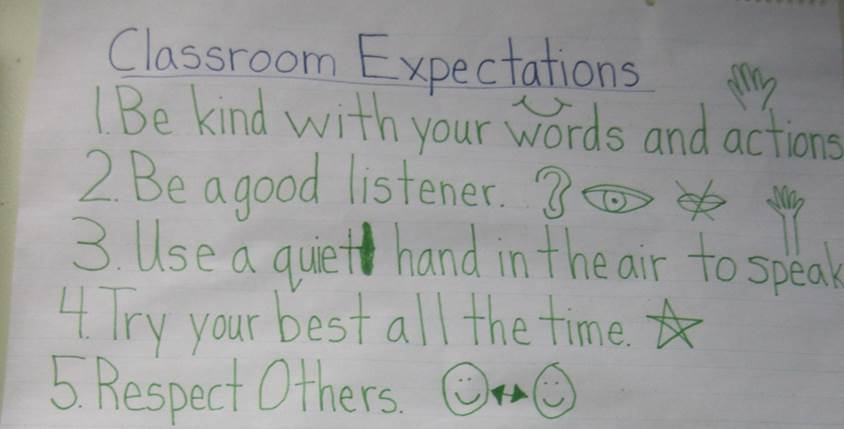 Classroom Expectations
1. Be kind with your words and actions
2. Be a good listener.
3. Use a quiet hand in the air to speak
4. Try your best all the time.
5. Respect Others.